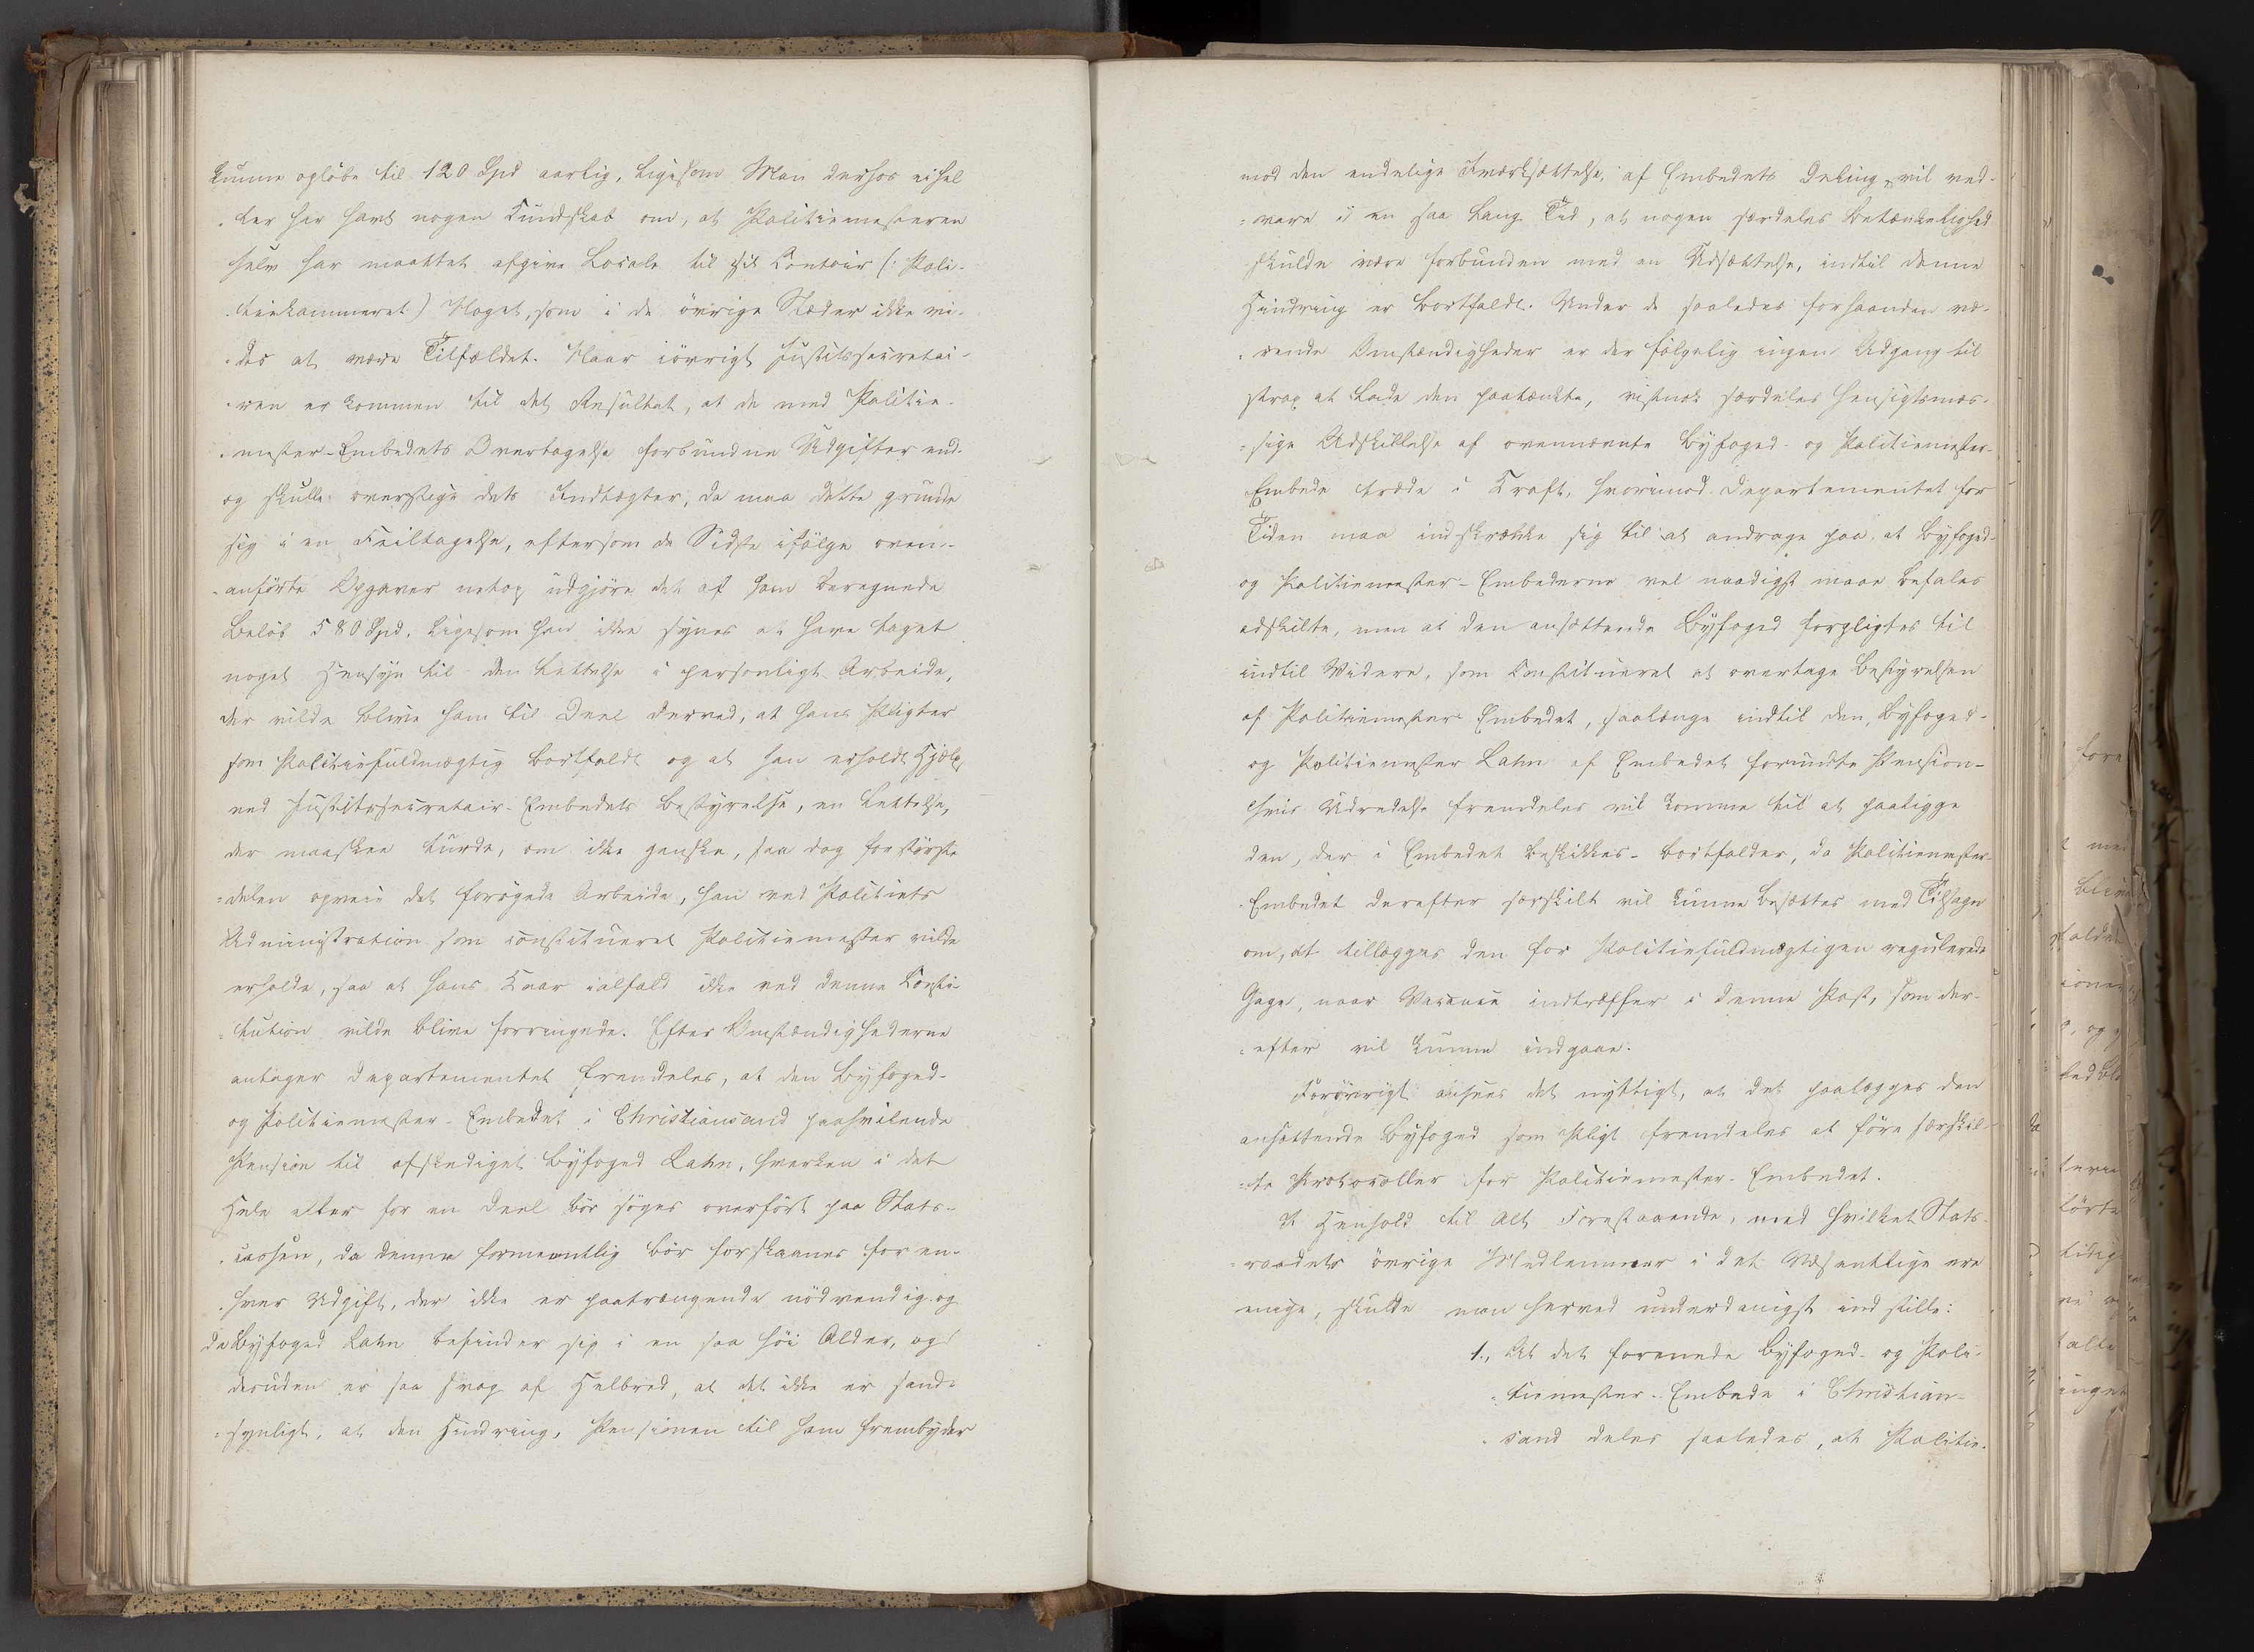 kunne opløbe til 120 Spd aarlig, ligesom Man derhos ei hel-
-ler har havt nogen Kundskab om, at Politiemesteren
selv har maattet afgive Locale til sit Contoir (: Poli-
-tiekammeret) Noget, som i de övrige Stæder ikke vi-
-des at være Tilfældet. Naar iövrigt Justitssecretai-
-ren er kommen til det Resultat, at de med Politie-
-mester-Embedets Overtagelse forbundne Udgifter end-
og skulle overstige dets Indtægter, da maa dette grunde
sig i en Feiltagelse, eftersom de Sidste ifölge oven-
-anförte Opgaver netop udgjöre det af ham beregnede
Belöb 580 Spd, ligesom han ikke synes at have taget
noget Hensyn til den Lettelse i personligt Arbeide,
der vilde blive ham til Deel derved, at hans Pligter
som Politiefuldmægtig bortfaldt og at han erholdt Hjælp
ved Justitssecretair-Embedets Bestyrelse, en Lettelse,
der maaskee turde, om ikke ganske, saa dog for störste
-delen opveie det forögede Arbeide, han ved Politiets
Administration som constitueret Politiemester vilde
erholde, saa at hans Kaar ialfald ikke ved denne Consti-
-tution vilde blive forringede. Efter Omstændighederne
antager Departementet fremdeles, at den Byfoged-
og Politiemester-Embedet i Christiansand paahvilende
Pension til afskediget Byfoged Lahn, hverken i det
Hele eller for en Deel bör söges overfört paa Stats-
-cassen, da denne formeentlig bör forskaanes for en-
-hver Udgift, der ikke er paatrængende nödvendig og
da Byfoged Lahn befinder sig i en saa höi Alder, og
desuden er saa svag af Helbred, at det ikke er sand-
-synligt, at den Hindring, Pensionen til ham frembyder
mod den endelige Iværksættelse af Embedets Deling, vil ved-
-vare i en saa lang Tid, at nogen særdeles Betænkelighed
skulde være forbunden med en Udsættelse, indtil denne
Hindring er bortfaldt. Under de saaledes forhaanden væ-
-rende Omstændigheder er der fölgelig ingen Adgang til
strax at lade den paatænkte, vistnok særdeles hensigtsmæs-
-sige Adskillelse af ovennævnte Byfoged- og Politiemester-
Embede træde i Kraft, hvorimod Departementet for
Tiden maa indskrænke sig til at andrage paa, at Byfoged-
og Politiemester-Embederne vel naadigst maae befales
adskilte, men at den ansættende Byfoged forpligtes til
indtil Videre, som Constitueret at overtage Bestyrelsen
af Politiemester Embedet, saalænge indtil den, Byfoged-
og Politiemester Lahn af Embedet forundte Pension-
hvis Udredelse fremdeles vil komme til at paaligge
den, der i Embedet beskikkes- bortfalder, da Politiemester-
Embedet derefter særskilt vil kunne besættes med Tilsagn
om, at tillægges den for Politiefuldmægtigen regulerede
Gage, naar Vacance indtræffer i denne Post, som der-
-efter vil kunne indgaae.
Forövrigt ansees det nyttigt, at det paalægges den
ansættende Byfoged som Pligt fremdeles at före særskil-
-te Protocoller for Politiemester-Embedet.
I Henhold til Alt Forestaaende, med hvilket Stats-
-raadets övrige Medlemmer i det Væsentlige ere
enige, skulde man herved underdanigst indstille:
1., At det forenede Byfoged- og Poli-
-tiemester-Embede i Christian-
-sand deles saaledes, at Politie-